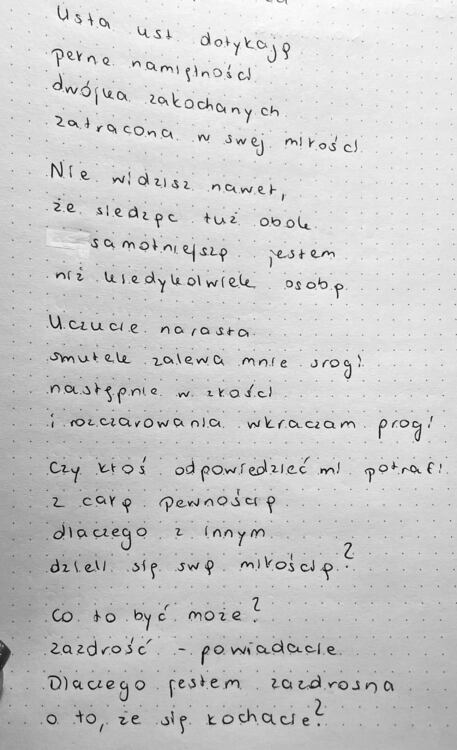 Usta ust dotykają
pełne namiętności
dwójka zakochanych
zatracona w swej miłości
Nie widzisz nawet,
że siedząc tuż obok
samotniejszą jestem
niż kiedykolwiek osobą
Uczucie narasta
smutek zalewa mnie srogi
następnie w złości
i rozczarowania wkraczam progi
Czy ktoś odpowiedzieć mi potrafi
z całą pewnością
dlaczego z innym
dzieli się swą miłością?
Co to być może?
zazdrość - powiadacie
Dlaczego jestem zazdrosna
o to, że się kochacie?